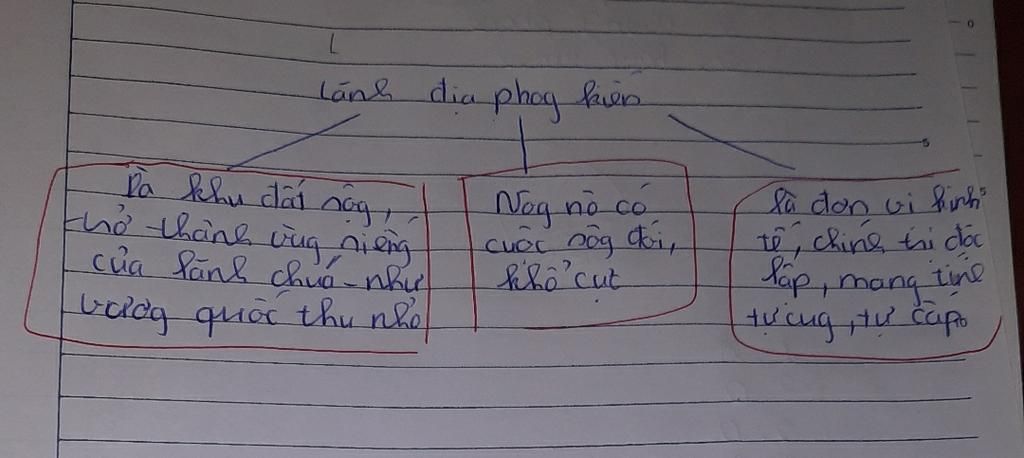 Lãnh địa phog kiến
Là khu đất rộg,
trở thành vùg riêng
của lãnh chúa - như
vươg quốc thu nhỏ
Nôg nô có
cuộc sốg đói,
khổ cực
là đơn vị kinh
tế, chính trị độc
lập, mang tính
tự cug, tự cấp